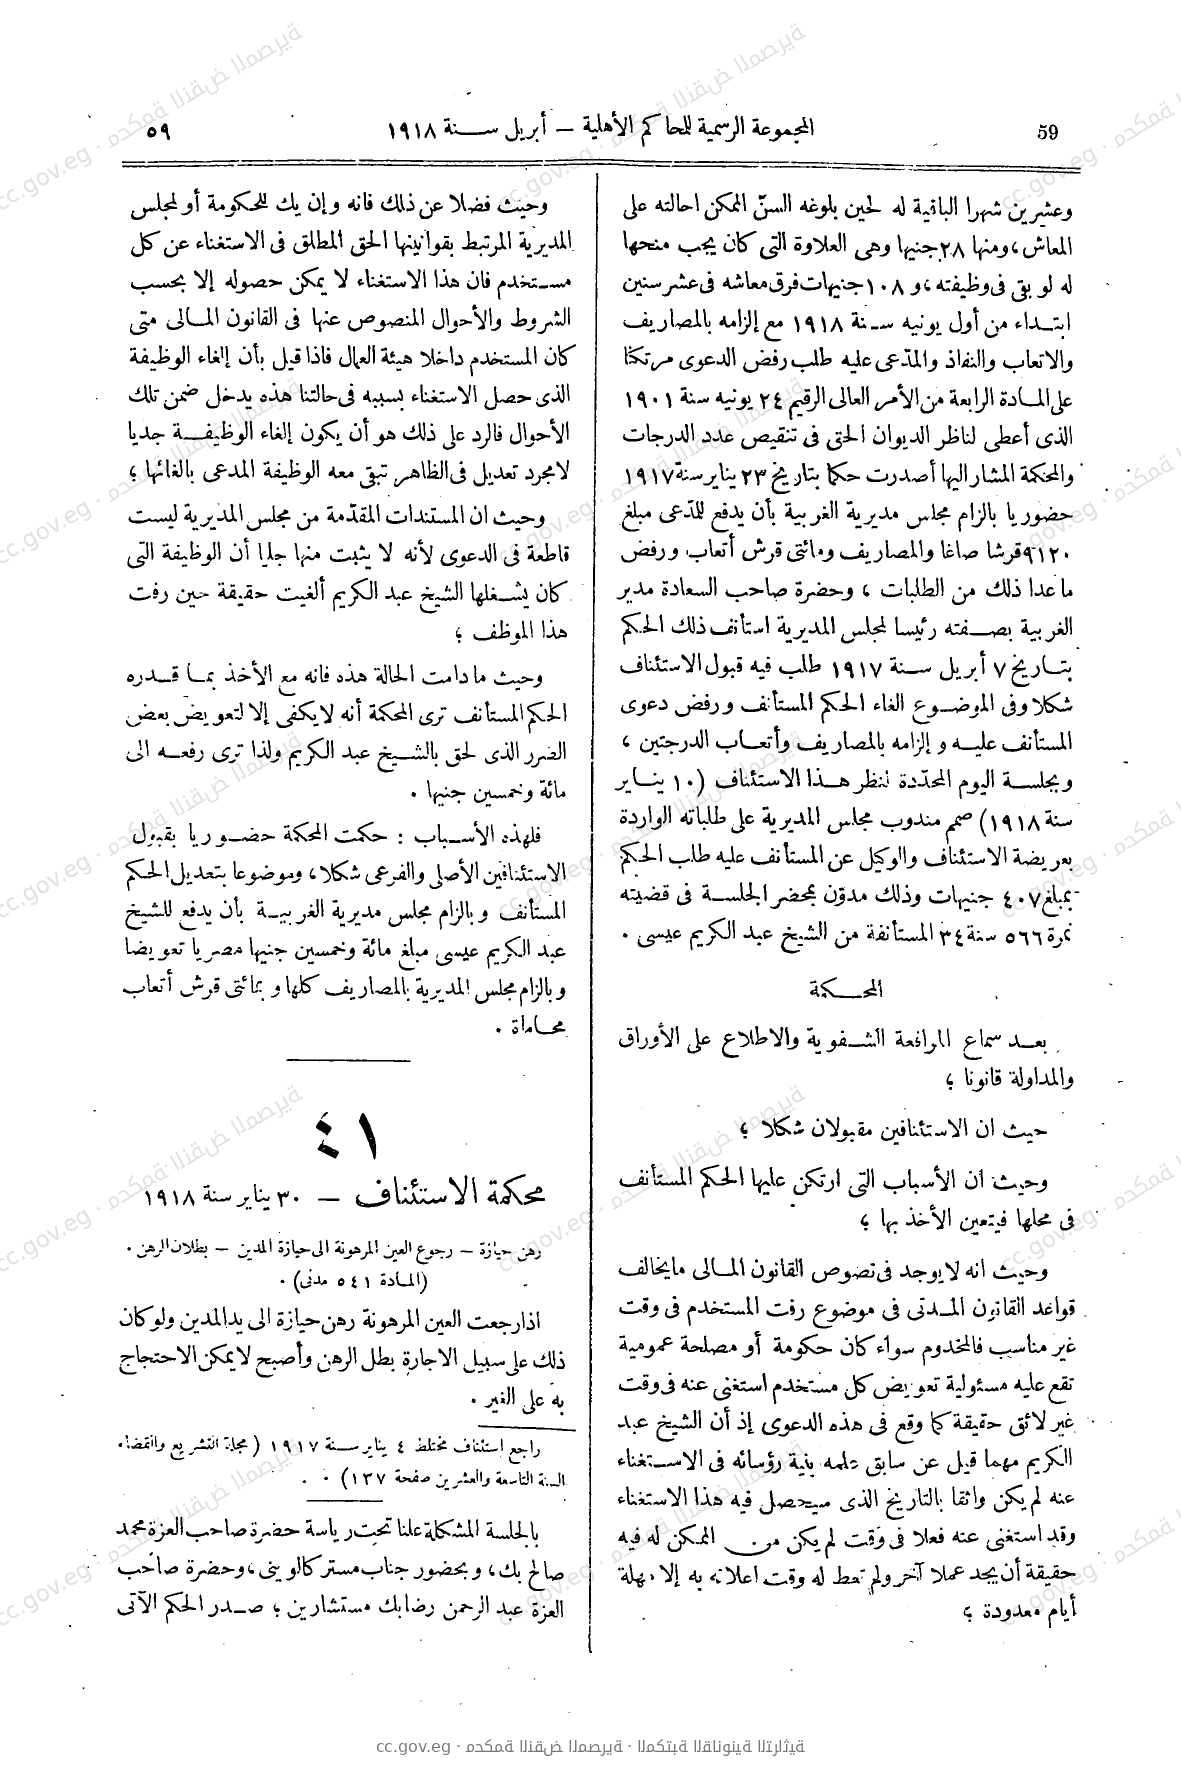 59
المجموعة الرسمية للمحاكم الأهلية – أبريل سنة ١٩١٨
٥٩
وعشرين شهرا الباقية له لحين بلوغه السنّ الممكن احالته على
المعاش، ومنها ٢٨ جنيها وهى العلاوة التى كان يجب منحها
له لو بقى فى وظيفته، و ١٠٨ جنيهات فرق معاشه فى عشر سنين
ابتداء من أول يونيه سنة ١٩١٨ مع إلزامه بالمصاريف
والاتعاب والنفاذ والمدّعى عليه طلب رفض الدعوى مرتكنا
على المادة الرابعة من الأمر العالى الرقيم ٢٤ يونيه سنة ١٩٠١
الذى أعطى لناظر الديوان الحق فى تنقيص عدد الدرجات
والمحكمة المشار اليها أصدرت حكما بتاريخ ٢٣ يناير سنة ١٩١٧
حضوريا بالزام مجلس مديرية الغربية بأن يدفع للمدّعى مبلغ
٩١٢٠ قرشا صاغا والمصاريف ومائتى قرش أتعاب ورفض
ما عدا ذلك من الطلبات، وحضرة صاحب السعادة مدير
الغربية بصفته رئيسا لمجلس المديرية استأنف ذلك الحكم
بتاريخ ٧ أبريل سنة ١٩١٧ طلب فيه قبول الاستئناف
شكلا وفى الموضوع الغاء الحكم المستأنف ورفض دعوى
المستأنف عليه و إلزامه بالمصاريف وأتعاب الدرجتين،
وبجلسة اليوم المحدّدة لنظر هذا الاستئناف (١٠ يناير
سنة ١٩١٨) صمم مندوب مجلس المديرية على طلباته الواردة
بعريضة الاستئناف والوكيل عن المستأنف عليه طلب الحكم
بمبلغ ٤٠٧ جنيهات وذلك مدوّن بمحضر الجلسة فى قضيته
نمرة ٥٦٦ سنة ٣٤ المستأنفة من الشيخ عبد الكريم عيسى .
المحكمة
بعد سماع المرافعة الشفوية والاطلاع على الأوراق
والمداولة قانونا ؛
حيث ان الاستئنافين مقبولان شكلا ؛
وحيث ان الأسباب التى ارتكن عليها الحكم المستأنف
فى محلها فيتعين الأخذ بها ؛
وحيث انه لا يوجد فى نصوص القانون المالى ما يخالف
قواعد القانون المدنى فى موضوع رفت المستخدم فى وقت
غير مناسب فالمخدوم سواء كان حكومة أو مصلحة عمومية
تقع عليه مسئولية تعويض كل مستخدم استغنى عنه فى وقت
غير لائق حقيقة كما وقع فى هذه الدعوى إذ أن الشيخ عبد
الكريم مهما قيل عن سابق علمه بنية رؤسائه فى الاستغناء
عنه لم يكن واثقا بالتاريخ الذى سيحصل فيه هذا الاستغناء
وقد استغنى عنه فعلا فى وقت لم يكن من الممكن له فيه
حقيقة أن يجد عملا آخر ولم تعط له وقت اعلانه به إلا مهلة
أيام معدودة ؛
وحيث فضلا عن ذلك فانه وإن يك للحكومة أو لمجلس
المديرية المرتبط بقوانينها الحق المطلق فى الاستغناء عن كل
مستخدم فان هذا الاستغناء لا يمكن حصوله إلا بحسب
الشروط والأحوال المنصوص عنها فى القانون المالى متى
كان المستخدم داخلا هيئة العمال فاذا قيل بأن إلغاء الوظيفة
الذى حصل الاستغناء بسببه فى حالتنا هذه يدخل ضمن تلك
الأحوال فالرد على ذلك هو أن يكون إلغاء الوظيفة جديا
لا مجرد تعديل فى الظاهر تبقى معه الوظيفة المدعى بالغائها ؛
وحيث ان المستندات المقدّمة من مجلس المديرية ليست
قاطعة فى الدعوى لأنه لا يثبت منها جليا أن الوظيفة التى
كان يشغلها الشيخ عبد الكريم ألغيت حقيقة حين رفت
هذا الموظف ؛
وحيث ما دامت الحالة هذه فانه مع الأخذ بما قدره
الحكم المستأنف ترى المحكمة أنه لا يكفى إلا لتعويض بعض
الضرر الذى لحق بالشيخ عبد الكريم ولذا ترى رفعه الى
مائة وخمسين جنيها .
فلهذه الأسباب : حكمت المحكمة حضوريا بقبول
الاستئنافين الأصلى والفرعى شكلا، وموضوعا بتعديل الحكم
المستأنف وبالزام مجلس مديرية الغربية بأن يدفع للشيخ
عبد الكريم عيسى مبلغ مائة وخمسين جنيها مصريا تعويضا
وبالزام مجلس المديرية بالمصاريف كلها وبمائتى قرش أتعاب
محاماة .
٤١
محكمة الاستئناف – ٣٠ يناير سنة ١٩١٨
رهن حيازة – رجوع العين المرهونة الى حيازة المدين – بطلان الرهن .
(المادة ٥٤١ مدنى) .
اذا رجعت العين المرهونة رهن حيازة الى يد المدين ولو كان
ذلك على سبيل الاجارة بطل الرهن وأصبح لا يمكن الاحتجاج
به على الغير .
راجع استئناف مختلط ٤ يناير سنة ١٩١٧ (مجلة التشريع والقضاء.
السنة التاسعة والعشرين صفحة ١٣٧) .
بالجلسة المشكلة علنا تحت رياسة حضرة صاحب العزة محمد
صالح بك، وبحضور جناب مستر كالوينى، وحضرة صاحب
العزة عبد الرحمن رضا بك مستشارين ؛ صدر الحكم الآتى
cc.gov.eg · محكمة النقض المصرية · المكتبة القانونية التراثية